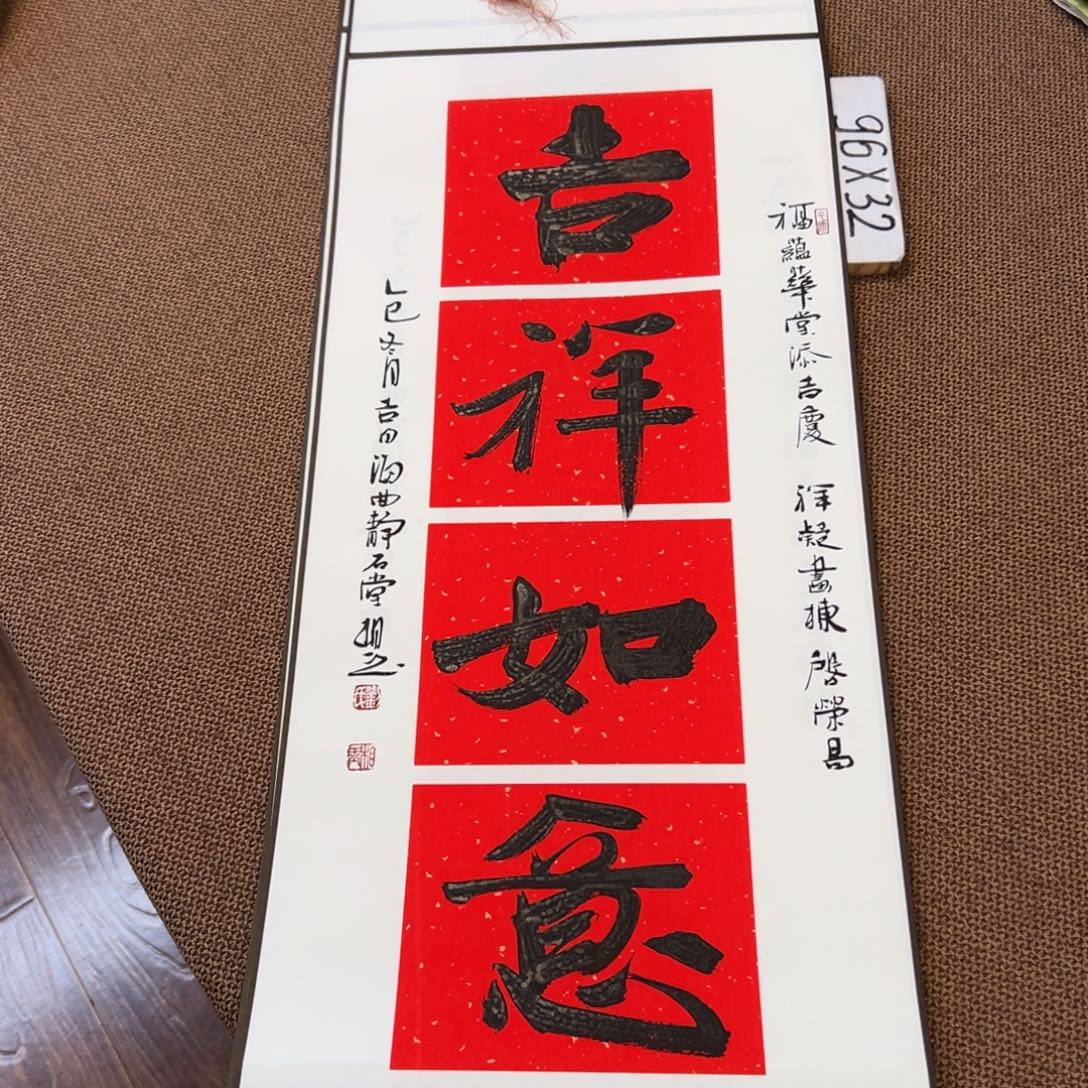 吉祥如意
福蘊華堂添吉慶 祥凝畫棟啓榮昌
乙巳冬月吉日海曲靜石堂
96X32